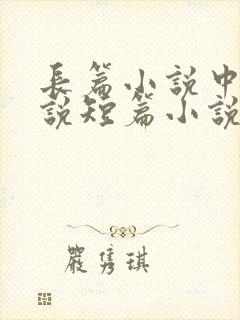 長篇小說中
說短篇小說
嚴隽琪